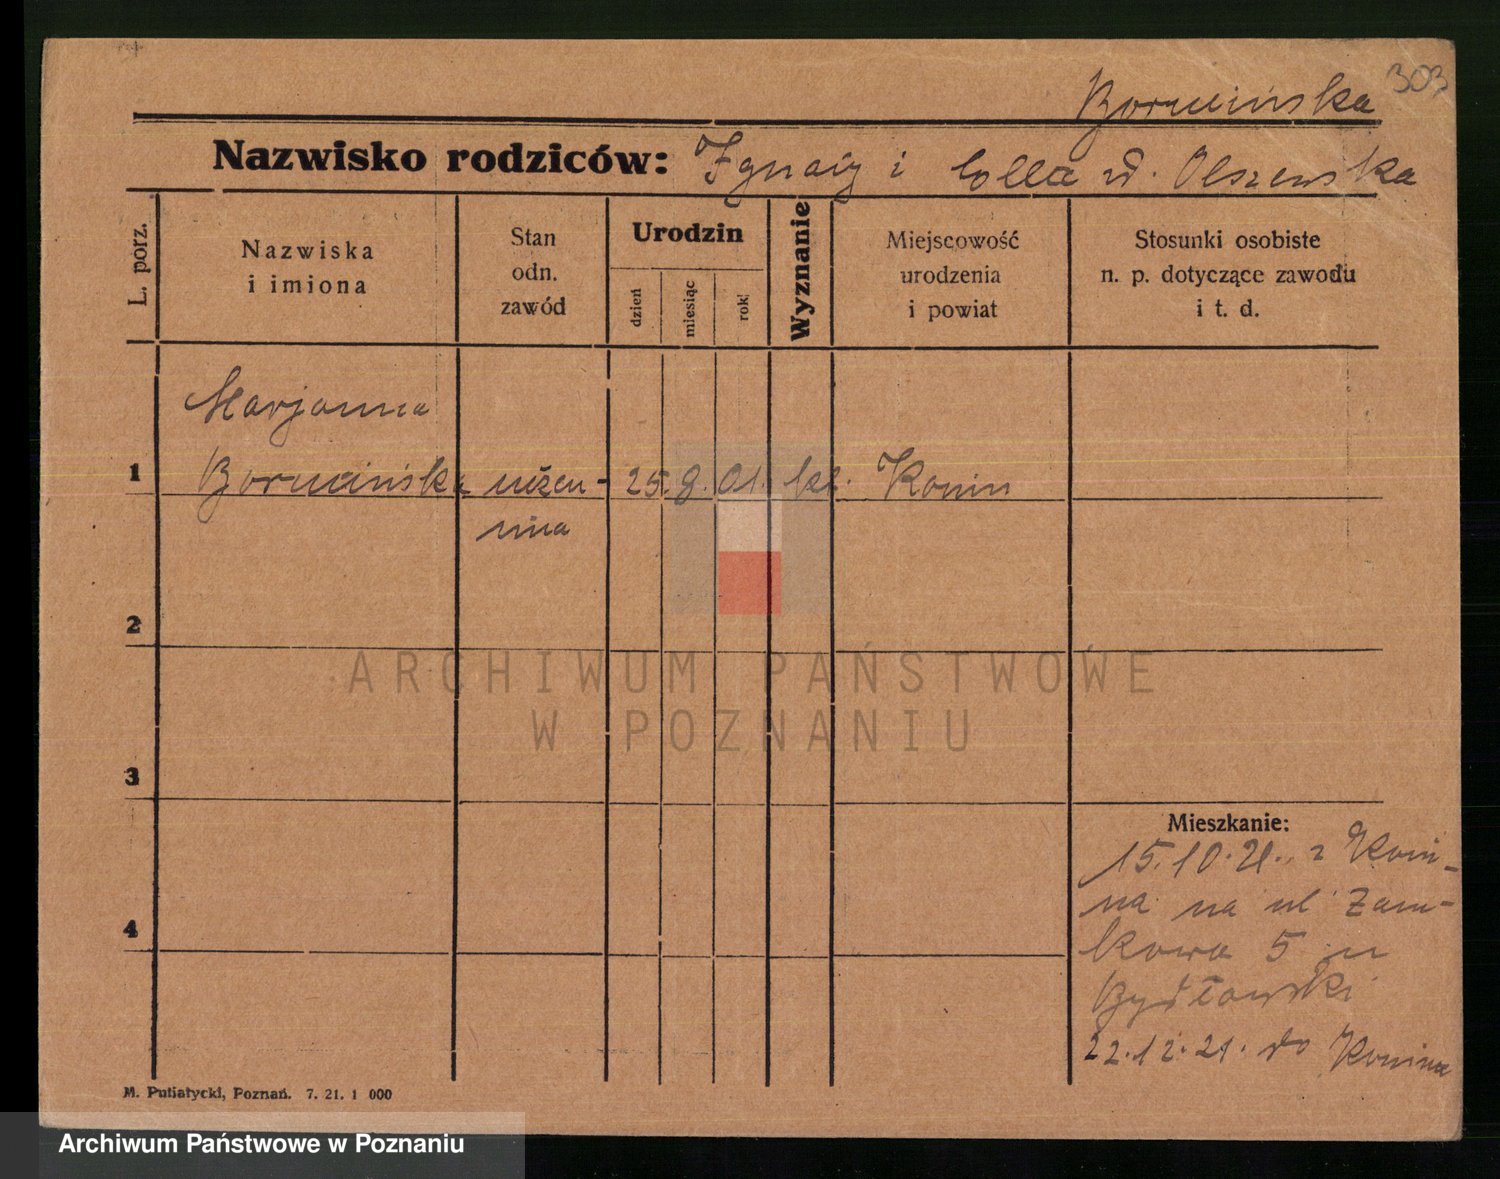 303
Borucińska
Nazwisko rodziców: Ignacy i d. Olszewska
L. porz.
Nazwiska
i imiona
Stan
odn.
zawód
Urodzin
dzień
miesiąc
rok
Wyznanie
Miejscowość
urodzenia
i powiat
Stosunki osobiste
n. p. dotyczące zawodu
i t. d.
Marjanna
1 Borucińska uczen- 25. 8. 01. kt. Konin
nica
2
3
4
Mieszkanie:
15.10.21. z Koni-
na na ul Zam-
kowa 5 u
Bydłowski
22.12.21. do Konina
M. Putiatycki, Poznań. 7. 21. 1 000
ARCHIWUM PAŃSTWOWE
W POZNANIU
Archiwum Państwowe w Poznaniu